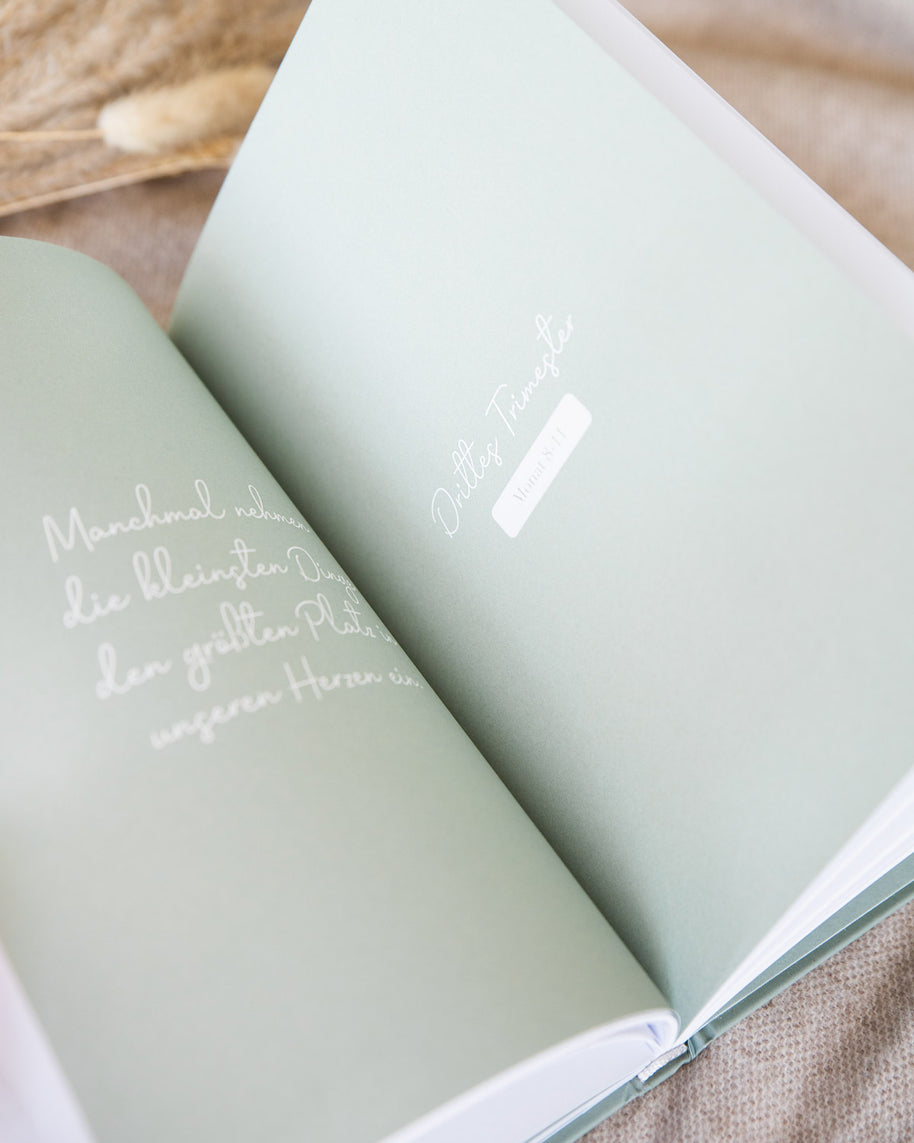 Manchmal nehmen
die kleinsten Dinge
den größten Platz in
unseren Herzen ein.
Drittes Trimester
Monat 8-11